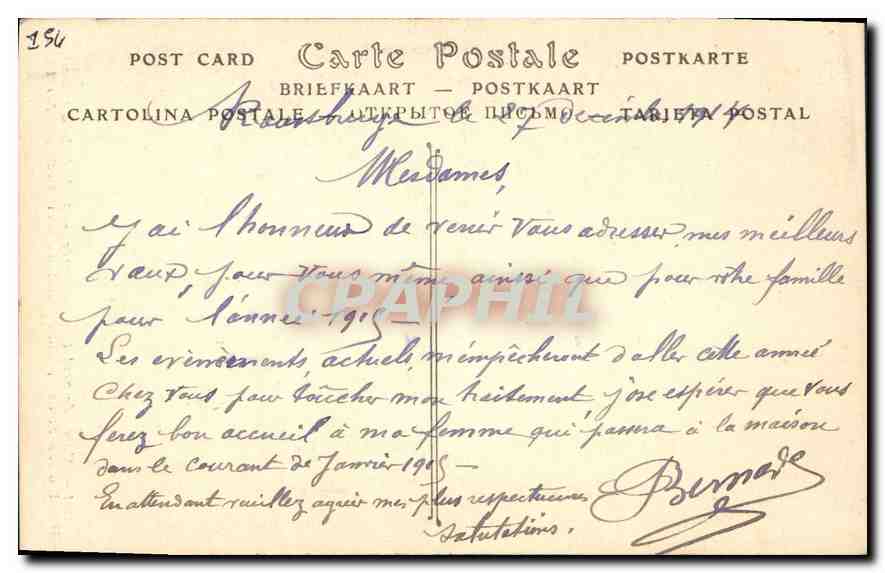 154
POST CARD Carte Postale POSTKARTE
BRIEFKAART — POSTKAART
CARTOLINA POSTALE — ОТКРЫТОЕ ПИСЬМО — TARJETA POSTAL
Rousbrugge le 27 Décemb 1914
Mesdames,
J'ai l'honneur de venir vous adresser mes meilleurs
vœux, pour vous même ainsi que pour votre famille
pour l'année 1915 —
CPAPHIL
Les evènements actuels m'empêcheront d'aller cette année
chez vous pour toûcher mon traitement j'ose espérer que vous
ferez bon accueil à ma femme qui passera à la maison
dans le courant de Janvier 1915 —
En attendant veuillez agréer mes plus respectueuses
salutations.
Bernard